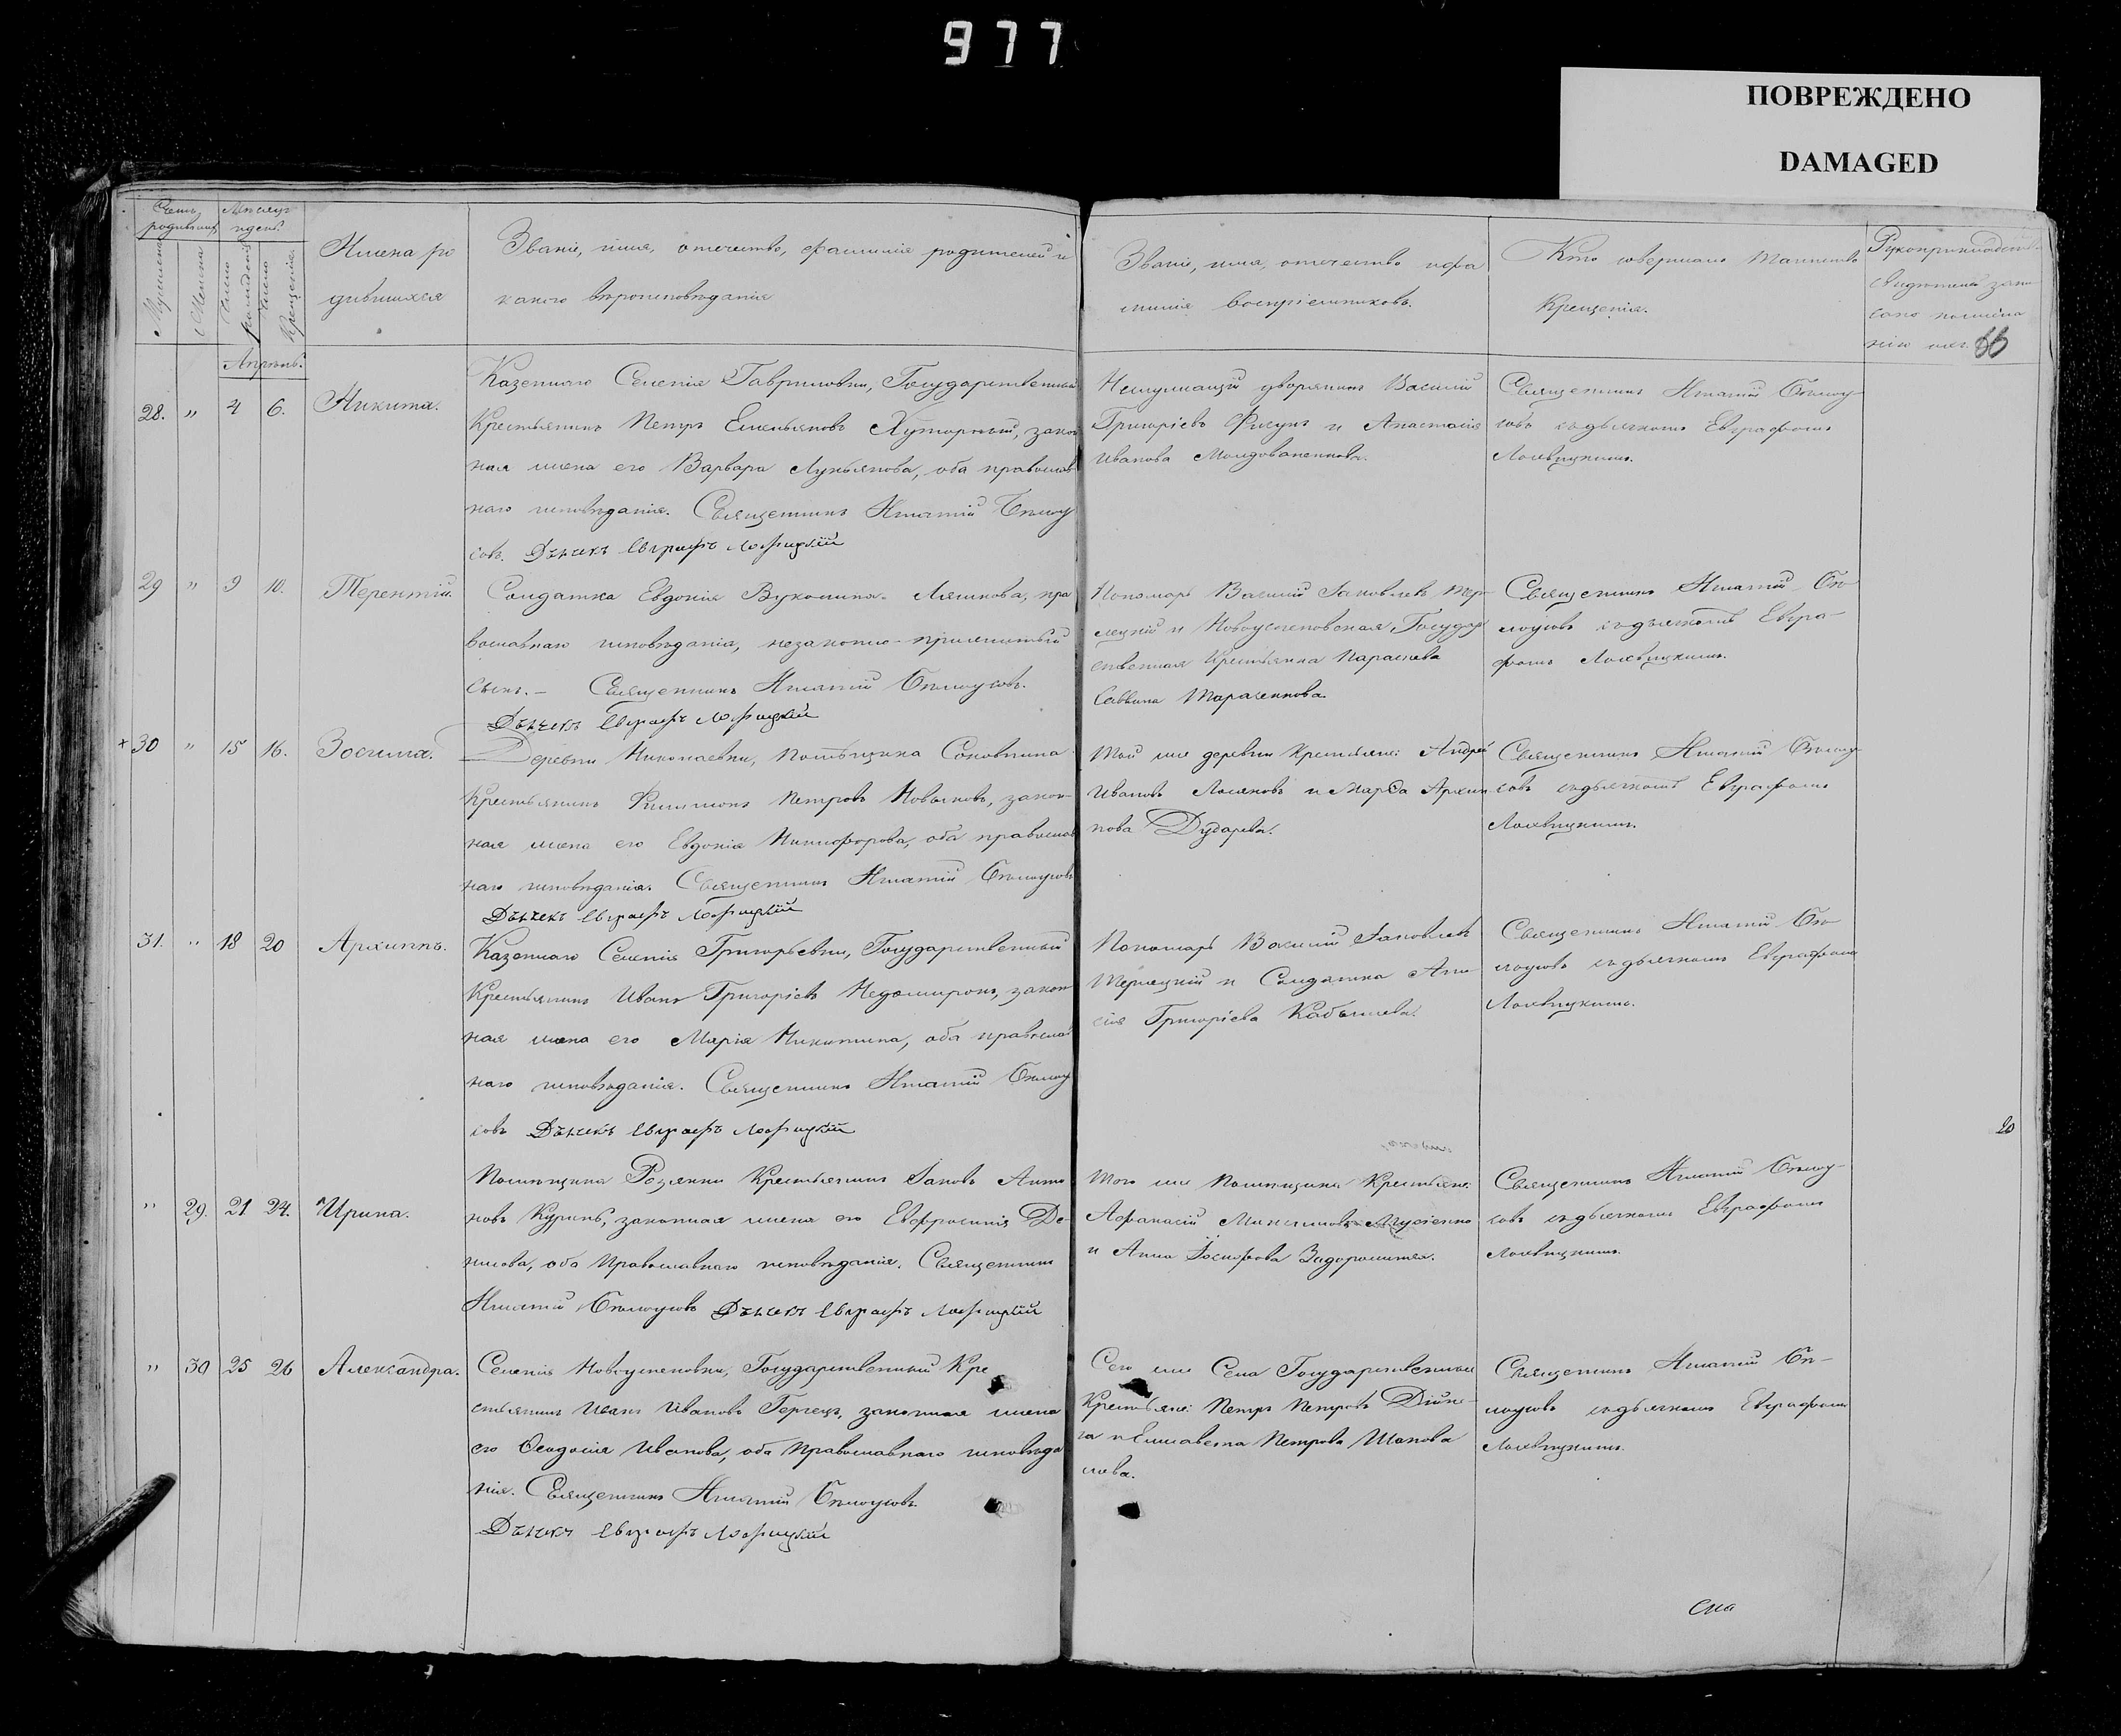 977
ПОВРЕЖДЕНО
DAMAGED
Счетъ родившихся
Мѣсяцъ и день
Мужеска
Женска
Число рожденія
Число Крещенія
Имена ро
дившихся
Званіе, имя, отечество, фамилія родителей и
какого вѣроисповѣданія
Званіе, имя, отечество и фа
милія воспріемниковъ.
Кто совершалъ таинство
Крещенія.
Рукоприкладство
свидѣтелей запи
66
Апрѣль.
28. " 4 6. Никита.
Казеннаго Селенія Гавриловки, Государственный
Крестьянинъ Петръ Емельяновъ Хуторный, закон
ная жена его Варвара Лукьянова, оба православ
наго исповѣданія. Священникъ Игнатій Бѣлоу
совъ. Дьячекъ Евграфъ Лохвицкій
Неслужащій дворянинъ Василій
Григоріевъ Фисунъ и Анастасія
Иванова Молдованенкова.
Священникъ Игнатій Бѣлоу-
совъ съ дьячкомъ Евграфомъ
Лохвицкимъ.
29 " 9 10. Терентій.
Солдатка Евдокія Вуколина Ляшкова, пра
вославнаго исповѣданія, незаконно-прижитый
сынъ. — Священникъ Игнатій Бѣлоусовъ.
Дьячекъ Евграфъ Лохвицкій
Пономарь Василій Іаковлевъ Тер-
лецкій и Новоуспеновская Государ
ственная Крестьянка Параскева
Саввина Тарасенкова.
Священникъ Игнатій Бѣ-
лоусовъ съ дьячкомъ Евгра-
фомъ Лохвицкимъ.
+ 30 " 15 16. Зосима.
Деревни Николаевки, помѣщика
Крестьянинъ Филимонъ Петровъ Новиковъ, закон-
ная жена его Евдокія Никифорова, оба православ
наго исповѣданія. Священникъ Игнатій Бѣлоусовъ
Дьячекъ Евграфъ Лохвицкій
Той же деревни Крестьяне: Андрей
Ивановъ и Марѳа Архип
пова Дударева.
Священникъ Игнатій Бѣлоу-
совъ съ дьячкомъ Евграфомъ
Лохвицкимъ.
31. " 18 20 Архиппъ.
Казеннаго Селенія Григорьевки, Государственный
Крестьянинъ Иванъ Григоріевъ Недомиронъ, закон
ная жена его Марія Никитина, оба православ
наго исповѣданія. Священникъ Игнатій Бѣлоу
совъ Дьячекъ Евграфъ Лохвицкій
Пономарь Василій Іаковлевъ
Терлецкій и Солдатка Ага
ѳія Григоріева
Священникъ Игнатій Бѣ-
лоусовъ съ дьячкомъ Евграфомъ
Лохвицкимъ.
" 29. 21 24. Ирина.
Помѣщика Розлянки Крестьянинъ Іаковъ Анто
новъ Курипъ, законная жена его Евфросинія Де-
нисова, оба Православнаго исповѣданія. Священникъ
Игнатій Бѣлоусовъ Дьячекъ Евграфъ Лохвицкій
Того же Помѣщика Крестьяне:
Аѳанасій Максимовъ Мусіенко
и Анна Іосифова Задорожная.
Священникъ Игнатій Бѣлоу-
совъ съ дьячкомъ Евграфомъ
Лохвицкимъ.
" 30 25 26 Александра.
Селенія Новоуспеновки, Государственный Кре
стьянинъ Иванъ Ивановъ законная жена
его Ѳеодосія Иванова, оба Православнаго исповѣда
нія. Священникъ Игнатій Бѣлоусовъ.
Дьячекъ Евграфъ Лохвицкій
Сего же Села Государственные
Крестьяне: Петръ Петровъ
и Елисавета Петрова Шапова
лова.
Священникъ Игнатій Бѣ-
лоусовъ съ дьячкомъ Евграфомъ
Лохвицкимъ.
20